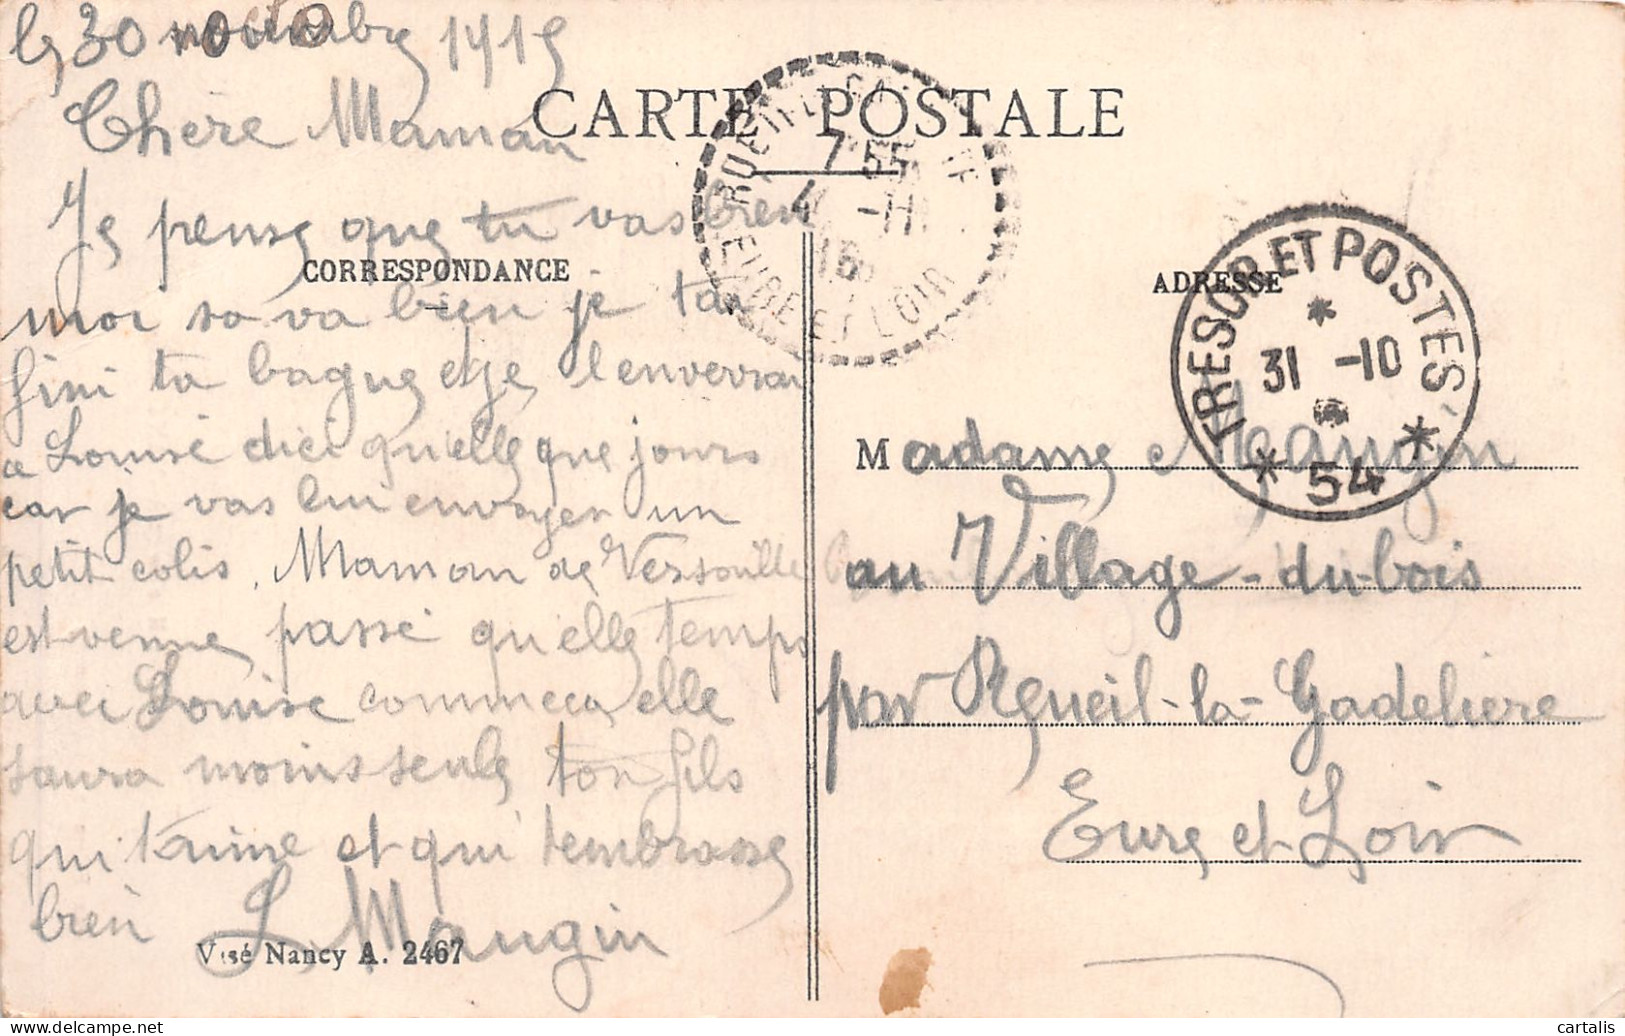 le 30 1915
Chère Maman
CARTE POSTALE
Je pense que tu vas bien
CORRESPONDANCE
moi sa va bien je tai
fini ta bague et je l'enverrai
a Louise dici quelle que jours
car je vas lui envoyer un
petit colis. Maman de Versaille
est venue passé quelle temps
avec Louise comme ça elle
saura moins seule ton fils
qui t'aime et qui tembrasse
bien L. Maugin
Visé Nancy A. 2467
7*55
4 -11
15
EURE ET LOIR
ADRESSE
TRESOR ET POSTES
31 -10
* 54 *
Madame Maugin
au Village-du-bois
par Reueil-la-Gadeliere
Eure et Loir
cartalis
www.delcampe.net